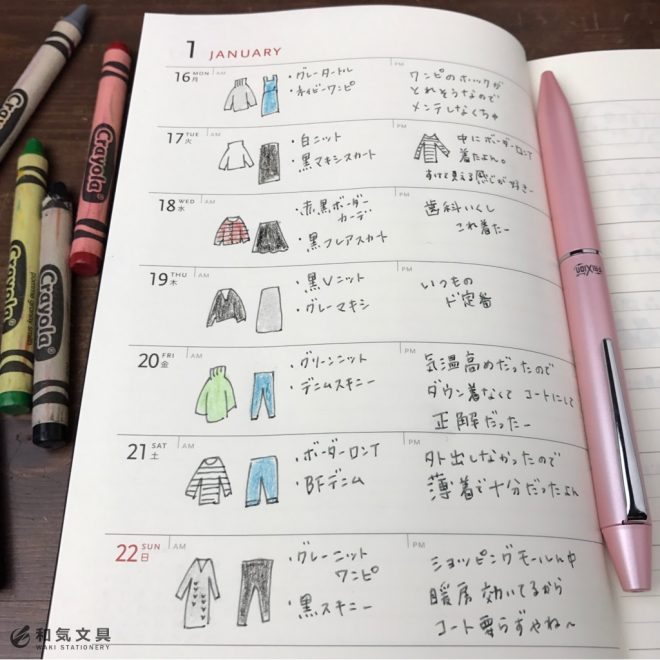 1 JANUARY
16 MON 月
AM
・グレータートル
・ネイビーワンピ
PM
ワンピのホックが
とれそうなので
メンテしなくちゃ
17 TUE 火
AM
・白ニット
・黒マキシスカート
PM
中にボーダーロンT
着たよん。
すけて見える感じが好きー
18 WED 水
AM
・赤黒ボーダー
カーデ
・黒フレアスカート
PM
歯科いくし
これ着たー
19 THU 木
AM
・黒Vニット
・グレーマキシ
PM
いつもの
ド定番
20 FRI 金
AM
・グリーンニット
・デニムスキニー
PM
気温高めだったので
ダウン着なくて コートにして
正解だったー
21 SAT 土
AM
・ボーダーロンT
・BFデニム
PM
外出しなかったので
薄着で十分だったよん
22 SUN 日
AM
・グレーニット
ワンピ
・黒スキニー
PM
ショッピングモールん中
暖房効いてるから
コート要らずやね〜
Crayola
Crayola
Crayola
Crayola
FRIXION
和気文具
WAKI STATIONERY